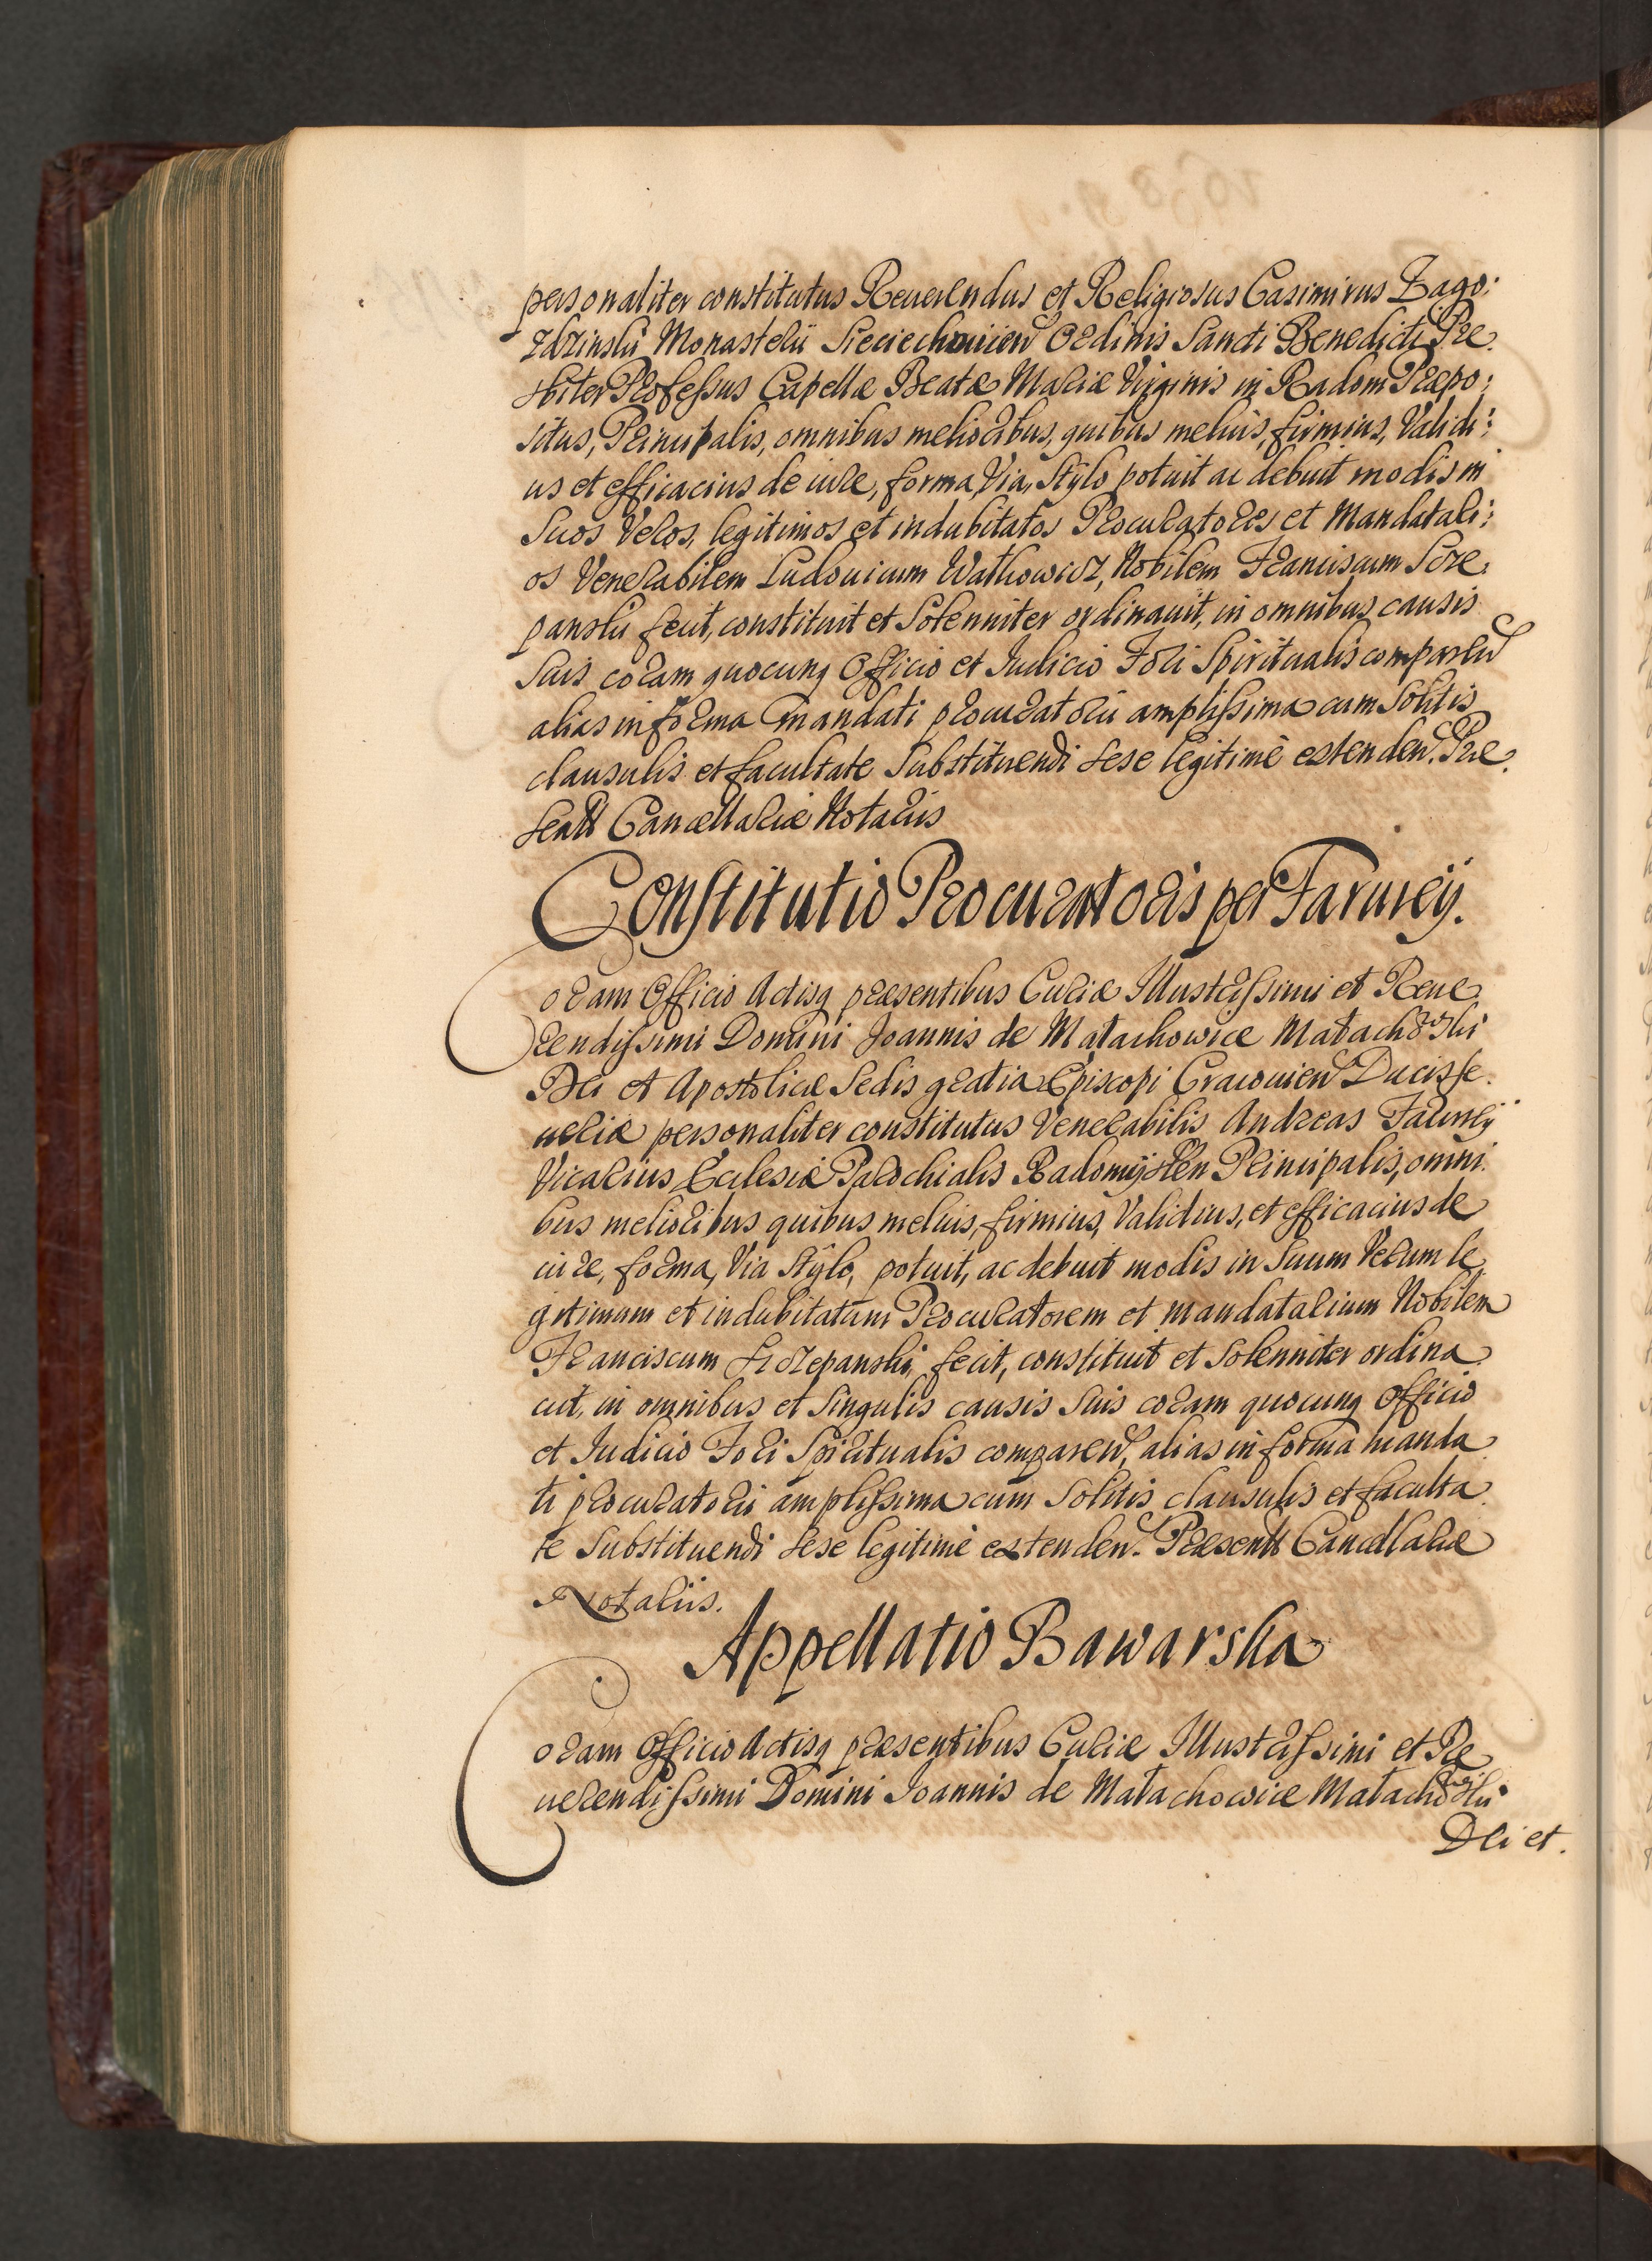 personaliter constitutus Reuerendus et Religiosus Casimirus Zago:
zdzinski Monasterii Sieciechouien Ordinis Sancti Benedicti Pre
sbiter Professus Capellæ Beatæ Mariæ Virginis in Radom Præpo:
situs, Principalis, omnibus melioribus, quibus melius, firmius, Validi:
us et efficacius de iure, forma, Via, Stÿlo potuit ac debuit modis in
Suos Veros, legitimos et indubitatos Procuratores et Mandatari:
os Venerabilem Ludouicum Wathowicz, Nobilem Franciscum Scze
panski fecit, constituit et Solenniter ordinauit, in omnibus causis
Suis coram quocunq Officio et Iudicio Fori Spiritualis comparen
alias in forma mandati procuratorii amplissima cum Solitis
clausulis et facultate Substituendi sese legitimè extenden. Præ
sentt Cancellariæ Notariis
Constitutio Procuratoris per Farurej.
Coram Officio Actisq præsentibus Curiæ Illustrissimi et Reue
rendissimi Domini Joannis de Małachowice Małachowski
Dei et Apostolicæ Sedis gratia Episcopi Cracouien Ducis Se
ueriæ personaliter constitutus Venerabilis Andreas Farurej
Vicarius Ecclesiæ Parochialis Radomÿslen Principalis, omni
bus melioribus quibus melius, firmius, Validius, et efficacius de
iure, forma, Via Stÿlo, potuit, ac debuit modis in Suum Verum le
gitimum et indubitatum Procuratorem et mandatarium Nobilem
Franciscum Sczepanski, fecit, constituit et Solenniter ordina
uit, in omnibus et Singulis causis Suis coram quocunq Officio
et Iudicio Fori Spiritualis comparen, alias in forma manda
ti procuratorii amplissima cum Solitis clausulis et faculta
te Substituendi sese legitimè extenden. Præsentt Cancellariæ
Notariis.
Appellatio Bawarska
Coram Officio Actisq præsentibus Curiæ Illustrissimi et Re
uerendissimi Domini Joannis de Małachowice Małachowski
Dei et.